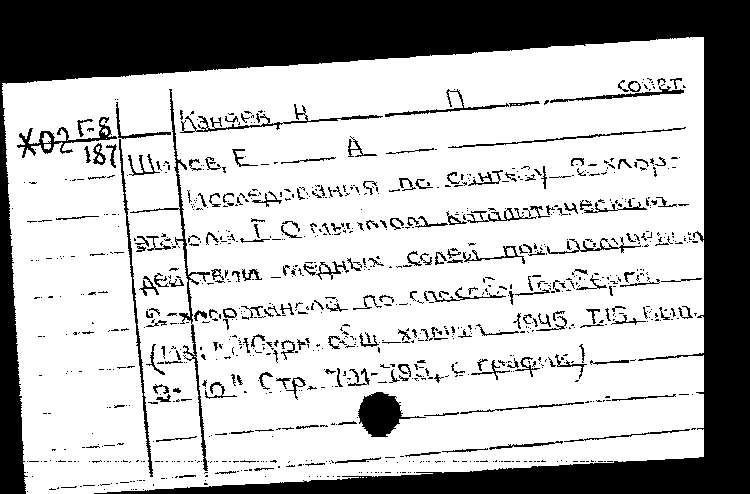 Каняев, Н П совет.
Х02 Г-8
187
Шилов, Е А
Исследования по синтезу 2-хлор-
этанола. I. О мнимом каталитическом
действии медных солей при получении
2-хлорэтанола по способу Гомберга.
(Из: "Журн. общ. химии. 1945. Т.15, вып.
9-10". Стр. 791-795, с график.).